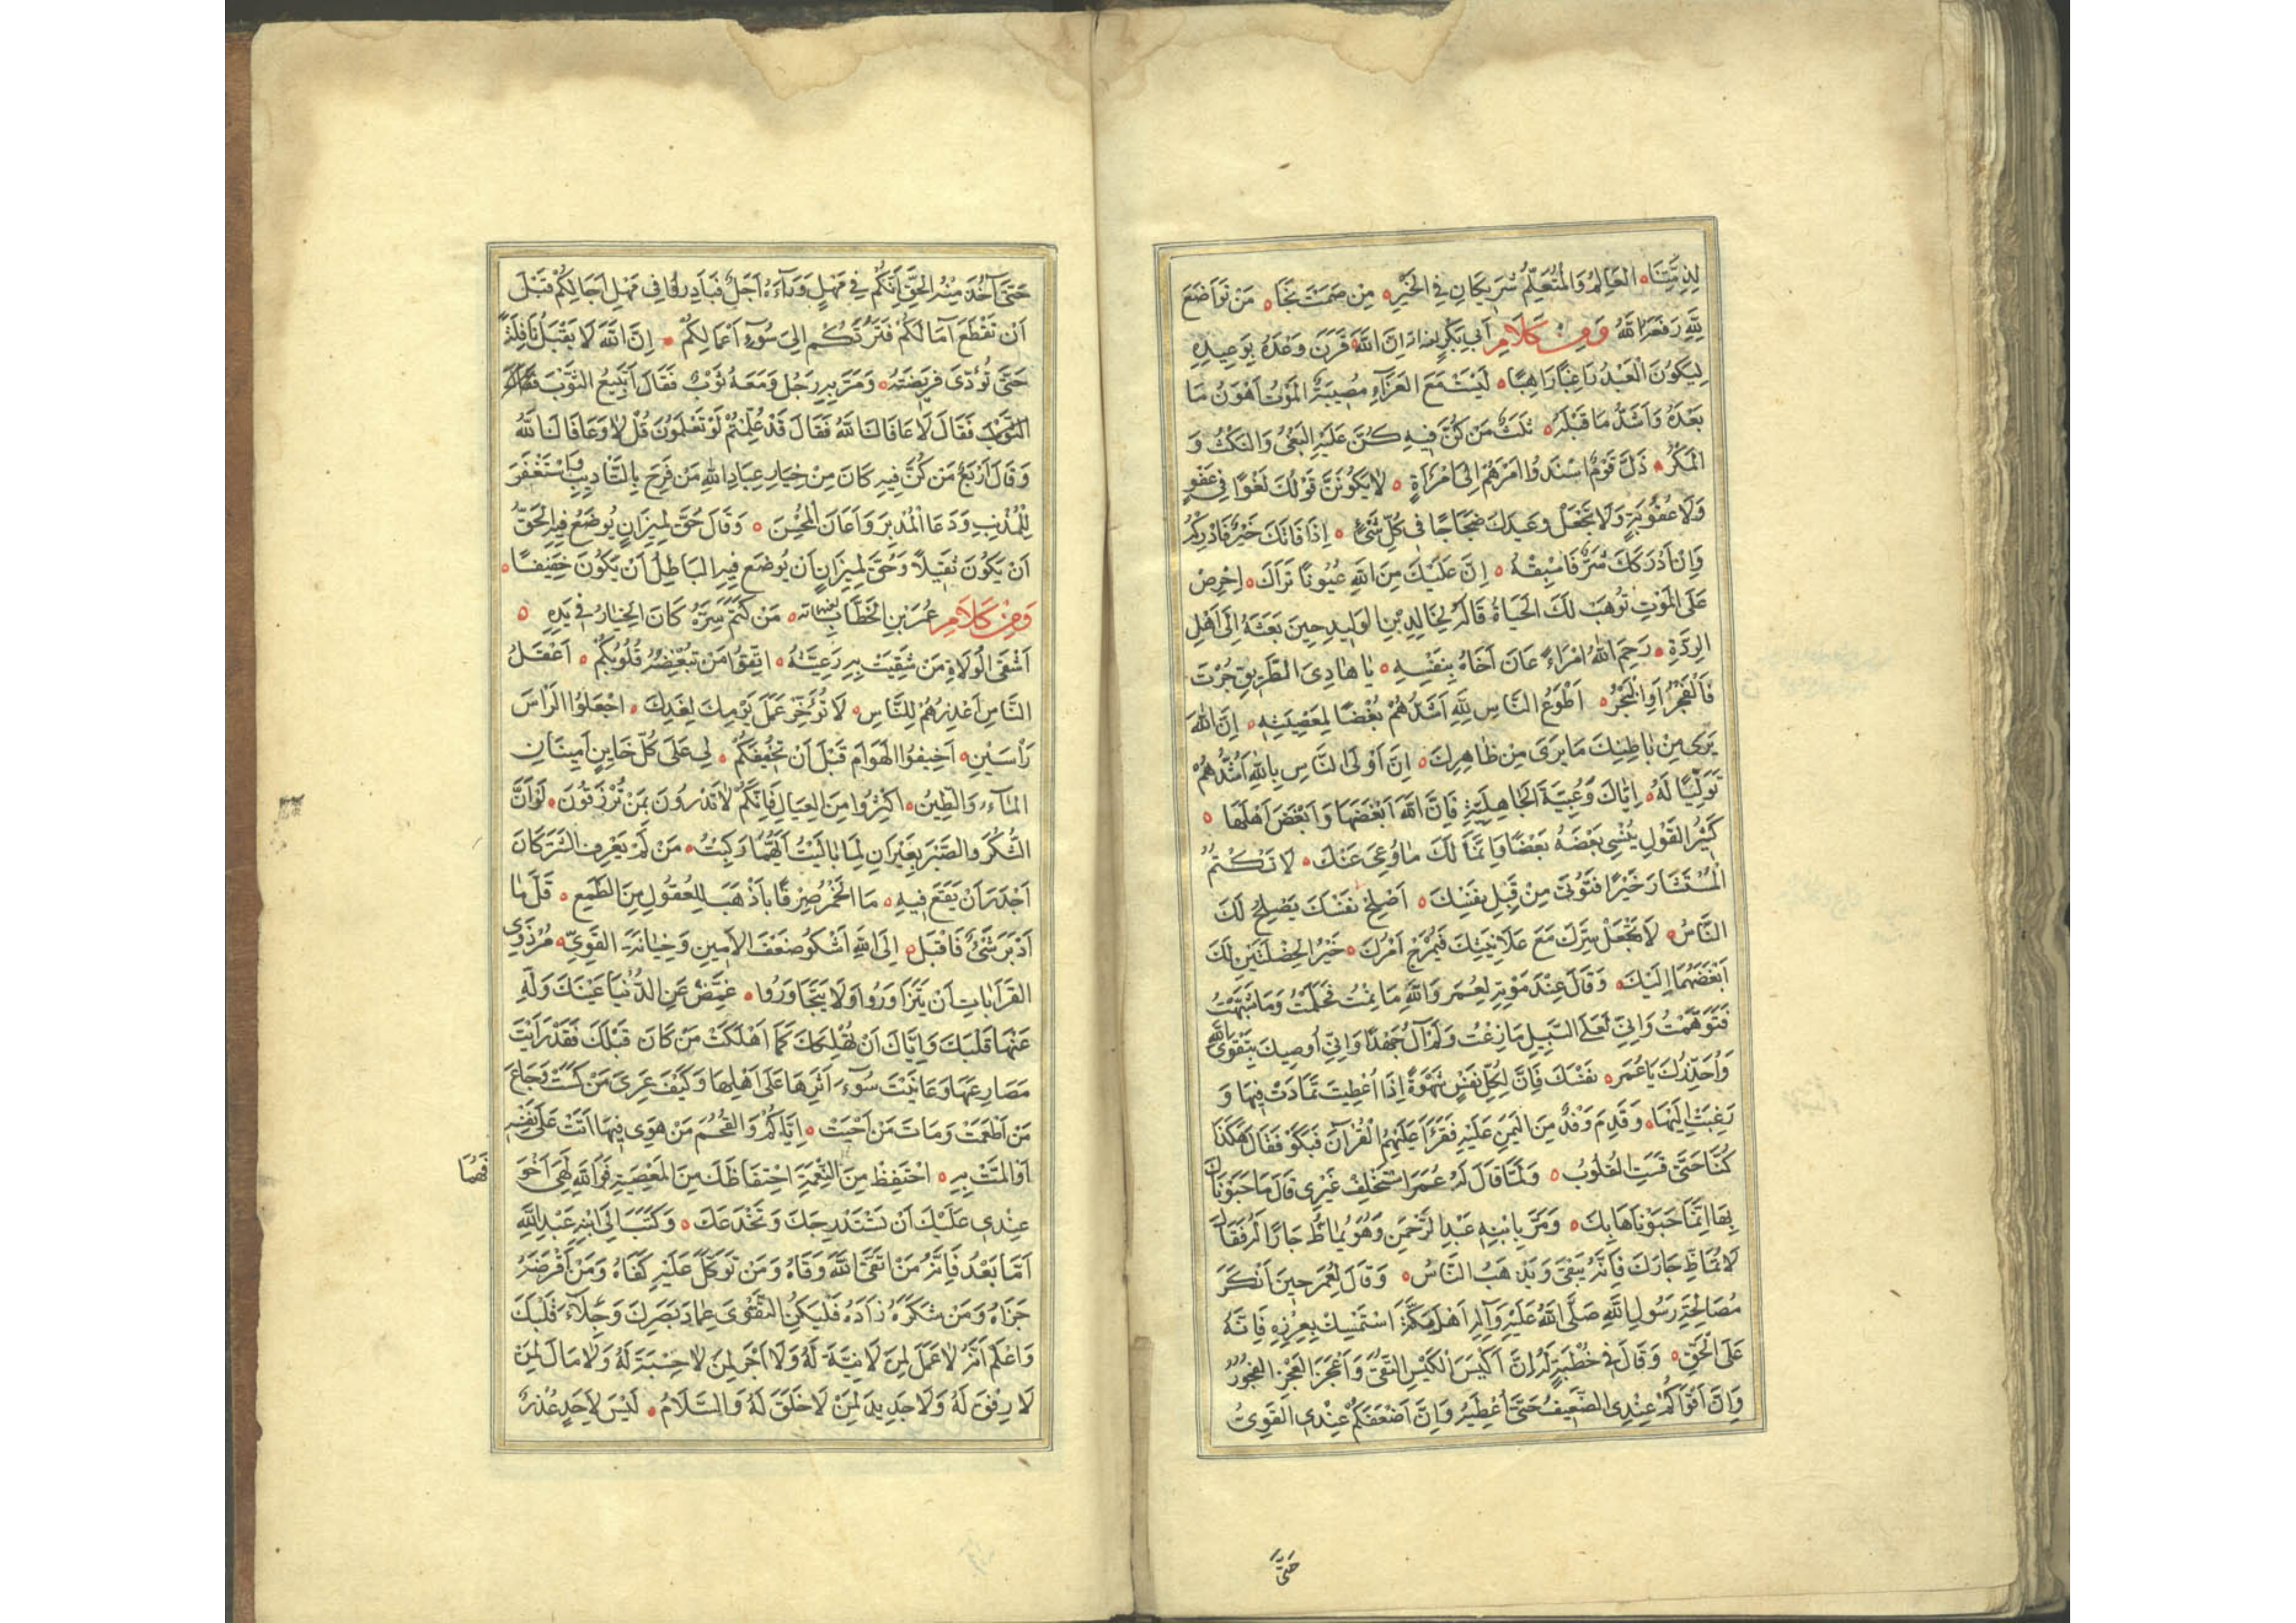 لِذِمَّتِنَا ۝ العَالِمُ وَالْمُتَعَلِّمُ شَرِيكَانِ فِي الْخَيْرِ ۝ مَنْ صَمَتَ نَجَا ۝ مَنْ تَوَاضَعَ
لِلَّهِ رَفَعَهُ اللَّهُ وَمِنْ كَلَامِ أَبِي بَكْرٍ إِنَّ اللَّهَ قَرَنَ وَعْدَهُ بِوَعِيدِهِ
لِيَكُونَ الْعَبْدُ رَاغِبًا رَاهِبًا ۝ لَيْسَتْ مَعَ العَزَاءِ مُصِيبَةٌ الْمَوْتُ أَهْوَنُ مَا
بَعْدَهُ وَأَشَدُّ مَا قَبْلَهُ ۝ ثَلَثٌ مَنْ كُنَّ فِيهِ كُنَّ عَلَيْهِ الْبَغْيُ وَالنَّكْثُ وَ
الْمَكْرُ ۝ ذَلَّ قَوْمٌ أَسْنَدُوا أَمْرَهُمْ إِلَى امْرَأَةٍ ۝ لَا يَكُونَنَّ قَوْلُكَ لَغْوًا فِي عَفْوٍ
وَلَا عُقُوبَةٍ وَلَا تَجْعَلْ وَعِيدَكَ ضَجَاجًا فِي كُلِّ شَيْءٍ ۝ إِذَا فَاتَكَ خَيْرٌ فَأَدْرِكْهُ
وَإِنْ أَدْرَكَكَ شَرٌّ فَاسْبِقْهُ ۝ إِنَّ عَلَيْكَ مِنَ اللَّهِ عُيُونًا تَرَاكَ ۝ احْرِصْ
عَلَى الْمَوْتِ تُوهَبْ لَكَ الْحَيَاةُ قَالَهُ لِخَالِدِ بْنِ الْوَلِيدِ حِينَ بَعَثَهُ إِلَى أَهْلِ
الرِّدَّةِ ۝ رَحِمَ اللَّهُ امْرَءً عَانَ أَخَاهُ بِنَفْسِهِ ۝ يَا هَادِيَ الطَّرِيقِ جُرْتَ
فَالْفَجْرُ أَوِ الْبَحْرُ ۝ أَطْوَعُ النَّاسِ لِلَّهِ أَشَدُّهُمْ بُغْضًا لِمَعْصِيَتِهِ ۝ إِنَّ اللَّهَ
يَرَى مِنْ بَاطِنِكَ مَا يَرَى مِنْ ظَاهِرِكَ ۝ إِنَّ أَوْلَى النَّاسِ بِاللَّهِ أَشَدُّهُمْ
تَوَلِّيًا لَهُ ۝ إِيَّاكَ وَعُبِّيَّةَ الْجَاهِلِيَّةِ فَإِنَّ اللَّهَ أَبْغَضَهَا وَأَبْغَضَ أَهْلَهَا ۝
كَثِيرُ القَوْلِ يُنْسِي بَعْضُهُ بَعْضًا وَإِنَّمَا لَكَ مَا وُعِيَ عَنْكَ ۝ لَا تَكْتُمُ
الْمُسْتَشَارَ خَيْرًا فَتُؤْتَى مِنْ قِبَلِ نَفْسِكَ ۝ أَصْلِحْ نَفْسَكَ يَصْلُحْ لَكَ
النَّاسُ ۝ لَا تَجْعَلْ سِرَّكَ مَعَ عَلَانِيَتِكَ فَيَمْرُجَ أَمْرُكَ ۝ خَيْرُ الْخَصْلَتَيْنِ لَكَ
أَبْغَضُهُمَا إِلَيْكَ ۝ وَقَالَ عِنْدَ مَوْتِهِ لِعُمَرَ وَاللَّهِ مَا نِمْتُ فَحَلَمْتُ وَمَا شَبَّهْتُ
فَتَوَهَّمْتُ وَإِنِّي لَعَلَى السَّبِيلِ مَا زِغْتُ وَلَمْ آلُ جُهْدًا وَإِنِّي أُوصِيكَ بِتَقْوَى اللَّهِ
وَأُحَذِّرُكَ يَا عُمَرُ ۝ نَفْسَكَ فَإِنَّ لِكُلِّ نَفْسٍ شَهْوَةً إِذَا أُعْطِيَتْ تَمَادَتْ فِيهَا وَ
رَغِبَتْ إِلَيْهَا ۝ وَقَدِمَ وَفْدٌ مِنَ الْيَمَنِ عَلَيْهِ فَقَرَأَ عَلَيْهِمُ الْقُرْآنَ فَبَكَوْا فَقَالَ هَكَذَا
كُنَّا حَتَّى قَسَتِ القُلُوبُ ۝ وَلَمَّا قَالَ لَهُ عُمَرُ اسْتَخْلِفْ غَيْرِي قَالَ مَا حَبَوْنَاكَ
بِهَا إِنَّمَا حَبَوْنَاهَا بِكَ ۝ وَمَرَّ بِابْنِهِ عَبْدِ الرَّحْمَنِ وَهُوَ يُمَاظُّ جَارًا لَهُ فَقَالَ
لَا تُمَاظِّ جَارَكَ فَإِنَّهُ يَبْقَى وَيَذْهَبُ النَّاسُ ۝ وَقَالَ لِعُمَرَ حِينَ أَنْكَرَ
مُصَالَحَةَ رَسُولِ اللَّهِ صَلَّى اللَّهُ عَلَيْهِ وَآلِهِ أَهْلَ مَكَّةَ اسْتَمْسِكْ بِغَرْزِهِ فَإِنَّهُ
عَلَى الْحَقِّ ۝ وَقَالَ فِي خُطْبَةٍ لَهُ إِنَّ أَكْيَسَ الْكَيْسِ التُّقَى وَأَعْجَزَ الْعَجْزِ الفُجُورُ
وَإِنَّ أَقْوَاكُمْ عِنْدِي الضَّعِيفُ حَتَّى أُعْطِيَهُ وَإِنَّ أَضْعَفَكُمْ عِنْدِي الْقَوِيُّ
حَتَّى
حَتَّى آخُذَ مِنْهُ الْحَقَّ إِنَّكُمْ فِي مَهْلٍ وَرَاءَهُ أَجَلٌ فَبَادِرُوا فِي مَهْلِ آجَالِكُمْ قَبْلَ
أَنْ تَقْطَعَ آمَالَكُمْ فَتَرُدَّكُمْ إِلَى سُوءِ أَعْمَالِكُمْ ۝ إِنَّ اللَّهَ لَا يَقْبَلُ نَافِلَةً
حَتَّى تُؤَدَّى فَرِيضَتُهُ ۝ وَمَرَّ بِهِ رَجُلٌ وَمَعَهُ ثَوْبٌ فَقَالَ أَتَبِيعُ الثَّوْبَ
فَقَالَ لَا عَافَاكَ اللَّهُ فَقَالَ قَدْ عُلِّمْتُمْ لَوْ تَعْلَمُونَ قُلْ لَا وَعَافَاكَ اللَّهُ
وَقَالَ أَرْبَعٌ مَنْ كُنَّ فِيهِ كَانَ مِنْ خِيَارِ عِبَادِ اللَّهِ مَنْ فَرِحَ بِالتَّائِبِ وَاسْتَغْفَرَ
لِلْمُذْنِبِ وَدَعَا الْمُدْبِرَ وَأَعَانَ الْمُحْسِنَ ۝ وَقَالَ حُقَّ لِمِيزَانٍ يُوضَعُ فِيهِ الْحَقُّ
أَنْ يَكُونَ ثَقِيلًا وَحُقَّ لِمِيزَانٍ أَنْ يُوضَعَ فِيهِ البَاطِلُ أَنْ يَكُونَ خَفِيفًا ۝
وَمِنْ كَلَامِ عُمَرَ بْنِ الْخَطَّابِ ۝ مَنْ كَتَمَ سِرَّهُ كَانَ الْخِيَارُ فِي يَدِهِ ۝
أَشْقَى الْوُلَاةِ مَنْ شَقِيَتْ بِهِ رَعِيَّتُهُ ۝ اتَّقُوا مَنْ تُبْغِضُهُ قُلُوبُكُمْ ۝ أَعْقَلُ
النَّاسِ أَعْذَرُهُمْ لِلنَّاسِ ۝ لَا تُؤَخِّرْ عَمَلَ يَوْمِكَ لِغَدِكَ ۝ اجْعَلُوا الرَّأْسَ
رَأْسَيْنِ ۝ أَخِيفُوا الْهَوَامَّ قَبْلَ أَنْ تُخِيفَكُمْ ۝ لِي عَلَى كُلِّ خَايِنٍ أَمِينَانِ
الْمَاءُ وَالطِّينُ ۝ أَكْثِرُوا مِنَ الْعِيَالِ فَإِنَّكُمْ لَا تَدْرُونَ بِمَنْ تُرْزَقُونَ ۝ لَوْ أَنَّ
الشُّكْرَ وَالصَّبْرَ بَعِيرَانِ لَمَا بَالَيْتُ أَيَّهُمَا رَكِبْتُ ۝ مَنْ لَمْ يَعْرِفِ الشَّرَّ كَانَ
أَجْدَرَ أَنْ يَقَعَ فِيهِ ۝ مَا الْخَمْرُ صِرْفًا بِأَذْهَبَ لِلْعُقُولِ مِنَ الطَّمَعِ ۝ قَلَّ مَا
أَدْبَرَ شَيْءٌ فَأَقْبَلَ ۝ إِلَى اللَّهِ أَشْكُو ضَعْفَ الْأَمِينِ وَخِيَانَةَ القَوِيِّ ۝ مُرْ ذَوِي
القَرَابَاتِ أَنْ يَتَزَاوَرُوا وَلَا يَتَجَاوَرُوا ۝ غَمِّضْ عَنِ الدُّنْيَا عَيْنَكَ وَوَلِّ
عَنْهَا قَلْبَكَ وَإِيَّاكَ أَنْ تُهْلِكَكَ كَمَا أَهْلَكَتْ مَنْ كَانَ قَبْلَكَ فَقَدْ رَأَيْتَ
مَصَارِعَهَا وَعَايَنْتَ سُوءَ أَثَرِهَا عَلَى أَهْلِهَا وَكَيْفَ عَرِيَ مَنْ كَسَتْ وَجَاعَ
مَنْ أَطْعَمَتْ وَمَاتَ مَنْ أَحْيَتْ ۝ إِيَّاكُمْ وَالْقُحَمَ مَنْ هَوَى فِيهَا أَتَتْ عَلَى نَفْسِهِ
أَوْ أَلَمَّتْ بِهِ ۝ احْتَفِظْ مِنَ النِّعْمَةِ احْتِفَاظَكَ مِنَ الْمَعْصِيَةِ فَوَاللَّهِ لَهِيَ أَخْوَفُهُمَا
عِنْدِي عَلَيْكَ أَنْ تَسْتَدْرِجَكَ وَتَخْدَعَكَ ۝ وَكَتَبَ إِلَى ابْنِهِ عَبْدِ اللَّهِ
أَمَّا بَعْدُ فَإِنَّهُ مَنِ اتَّقَى اللَّهَ وَقَاهُ وَمَنْ تَوَكَّلَ عَلَيْهِ كَفَاهُ وَمَنْ أَقْرَضَهُ
جَزَاهُ وَمَنْ شَكَرَهُ زَادَهُ فَلْيَكُنِ التَّقْوَى عِمَادَ بَصَرِكَ وَجَلَاءَ قَلْبِكَ
وَاعْلَمْ أَنَّهُ لَا عَمَلَ لِمَنْ لَا نِيَّةَ لَهُ وَلَا أَجْرَ لِمَنْ لَا حِسْبَةَ لَهُ وَلَا مَالَ لِمَنْ
لَا رِفْقَ لَهُ وَلَا جَدِيدَ لِمَنْ لَا خَلَقَ لَهُ وَالسَّلَامُ ۝ لَيْسَ لِأَحَدٍ عُذْرٌ